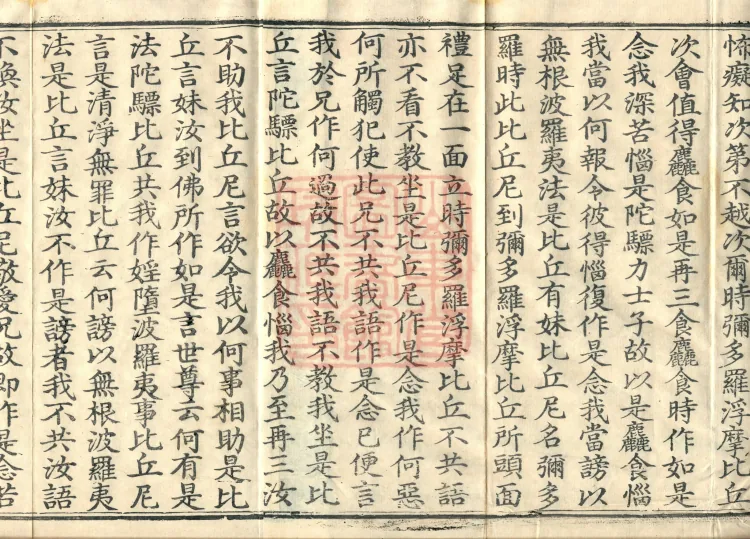 怖癡知次第不越次爾時彌多羅浮摩比丘
次會值得麤食如是再三食麤食時作如是
念我深苦惱是陀驃力士子故以是麤食惱
我當以何報令彼得惱復作是念我當謗以
無根波羅夷法是比丘有妹比丘尼名彌多
羅時此比丘尼到彌多羅浮摩比丘所頭面
禮足在一面立時彌多羅浮摩比丘不共語
亦不看不教坐是比丘尼作是念我作何惡
何所觸犯使此兄不共我語作是念已便言
我於兄作何過故不共我語不教我坐是比
丘言陀驃比丘故以麤食惱我乃至再三汝
不助我比丘尼言欲令我以何事相助是比
丘言妹汝到佛所作如是言世尊云何有是
法陀驃比丘共我作婬墮波羅夷事比丘尼
言是清淨無罪比丘云何謗以無根波羅夷
法是比丘言妹汝不作是謗者我不共汝語
不喚汝坐是比丘尼敬愛兄故即作是念若